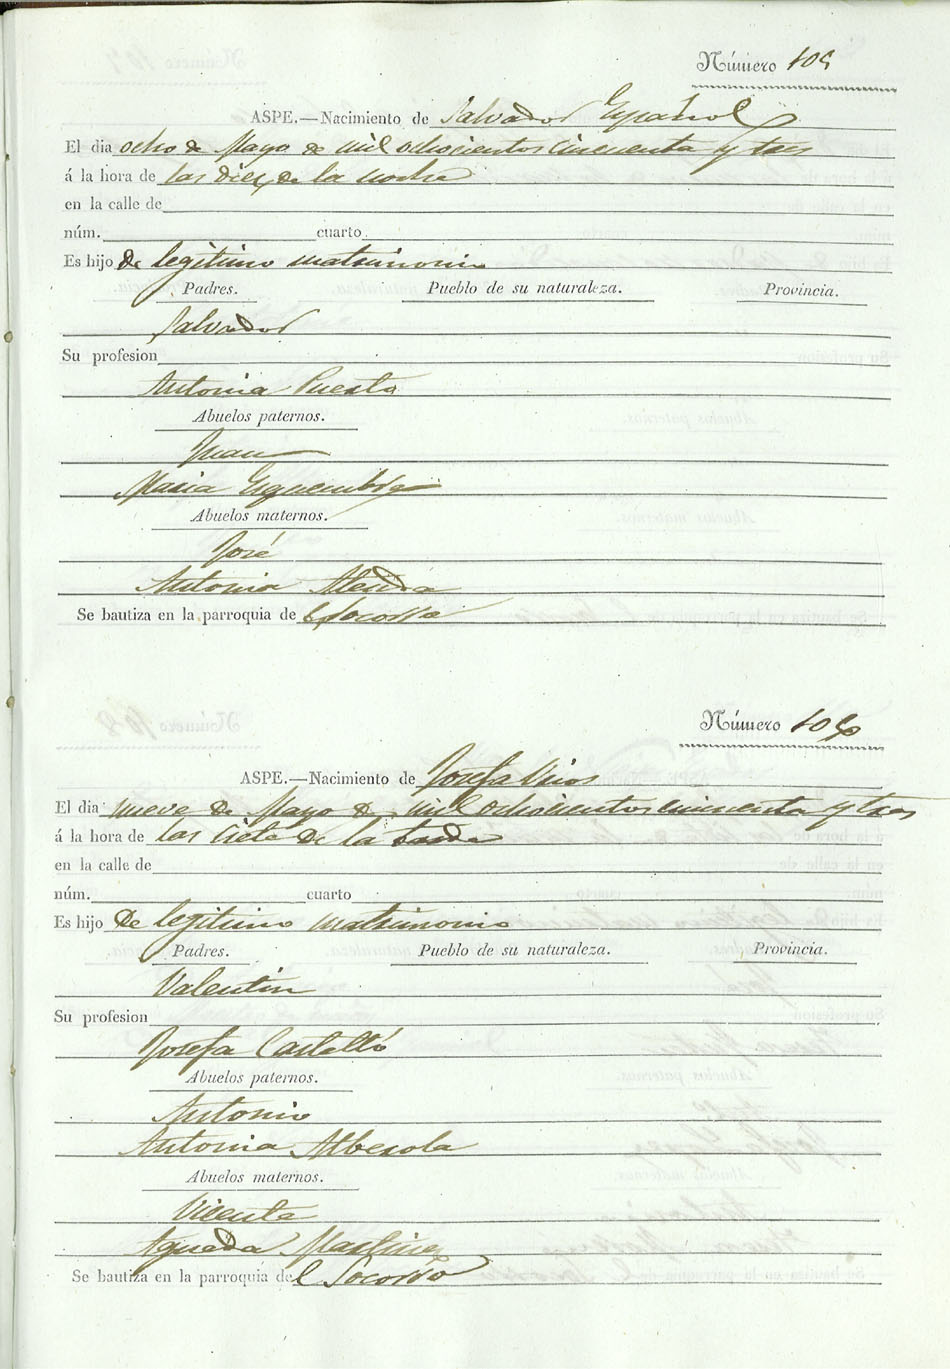 Número 105
ASPE.—Nacimiento de Salvador Español
El dia ocho de Mayo de mil ochocientos cincuenta y tres
á la hora de las diez de la noche
en la calle de
núm. cuarto
Es hijo de legitimo matrimonio
Padres. Pueblo de su naturaleza. Provincia.
Salvador
Su profesion
Antonia Puerta
Abuelos paternos.
Juan
Maria Esquembre
Abuelos maternos.
José
Antonia Alenda
Se bautiza en la parroquia de el Socorro
Número 106
ASPE.—Nacimiento de Josefa Vicos
El dia nueve de Mayo de mil ochocientos cincuenta y tres
á la hora de las siete de la tarde
en la calle de
núm. cuarto
Es hijo de legitimo matrimonio
Padres. Pueblo de su naturaleza. Provincia.
Valentin
Su profesion
Josefa Castelló
Abuelos paternos.
Antonio
Antonia Alberola
Abuelos maternos.
Vicente
Agueda Martinez
Se bautiza en la parroquia del Socorro